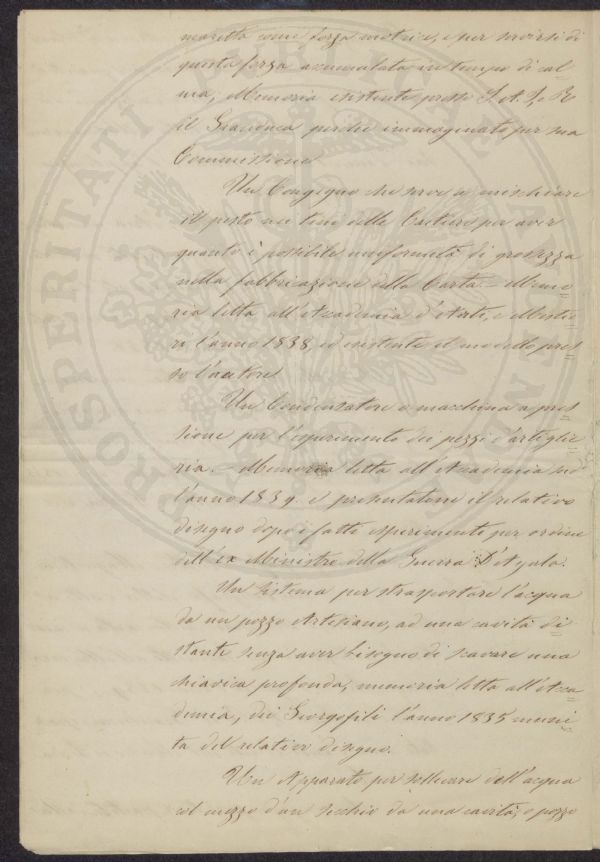 maretta come forza motrice, e per servirsi di
questa forza accumulata in tempo di cal=
ma; Memoria esistente presso S. A. I. e R
il Granduca perchè immaginato per sua
Commissione
Un Congegno che serve a mischiare
il pesto nei tini delle Cartiere per aver
quanto è possibile uniformità di grossezza
nella fabbricazione della Carta = Memo=
ria letta all'Accademia d'Arti, e Mestie=
ri l'anno 1838, ed esistente il modello pres=
so l'autore
Un Condensatore o macchina a pres=
sione per l'esperimento dei pezzi d'artiglie=
ria. = Memoria letta all'Accademia sud.a
l'anno 1839. e presentatone il relativo
disegno dopo i fatti esperimenti per ordine
dell'ex Ministro della Guerra D'Ayala.
Un Sistema per strasportare l'acqua
da un pozzo Artesiano, ad una cavità di=
stante senza aver bisogno di scavare una
chiavica profonda; memoria letta all'Acca=
demia, dei Georgofili l'anno 1835 muni=
ta del relativo disegno.
Un Apparato per sollevare dell'acqua
col mezzo d'un secchio da una cavità, o pozzo
PROSPERITATI PUBLICAE AUGENDAE